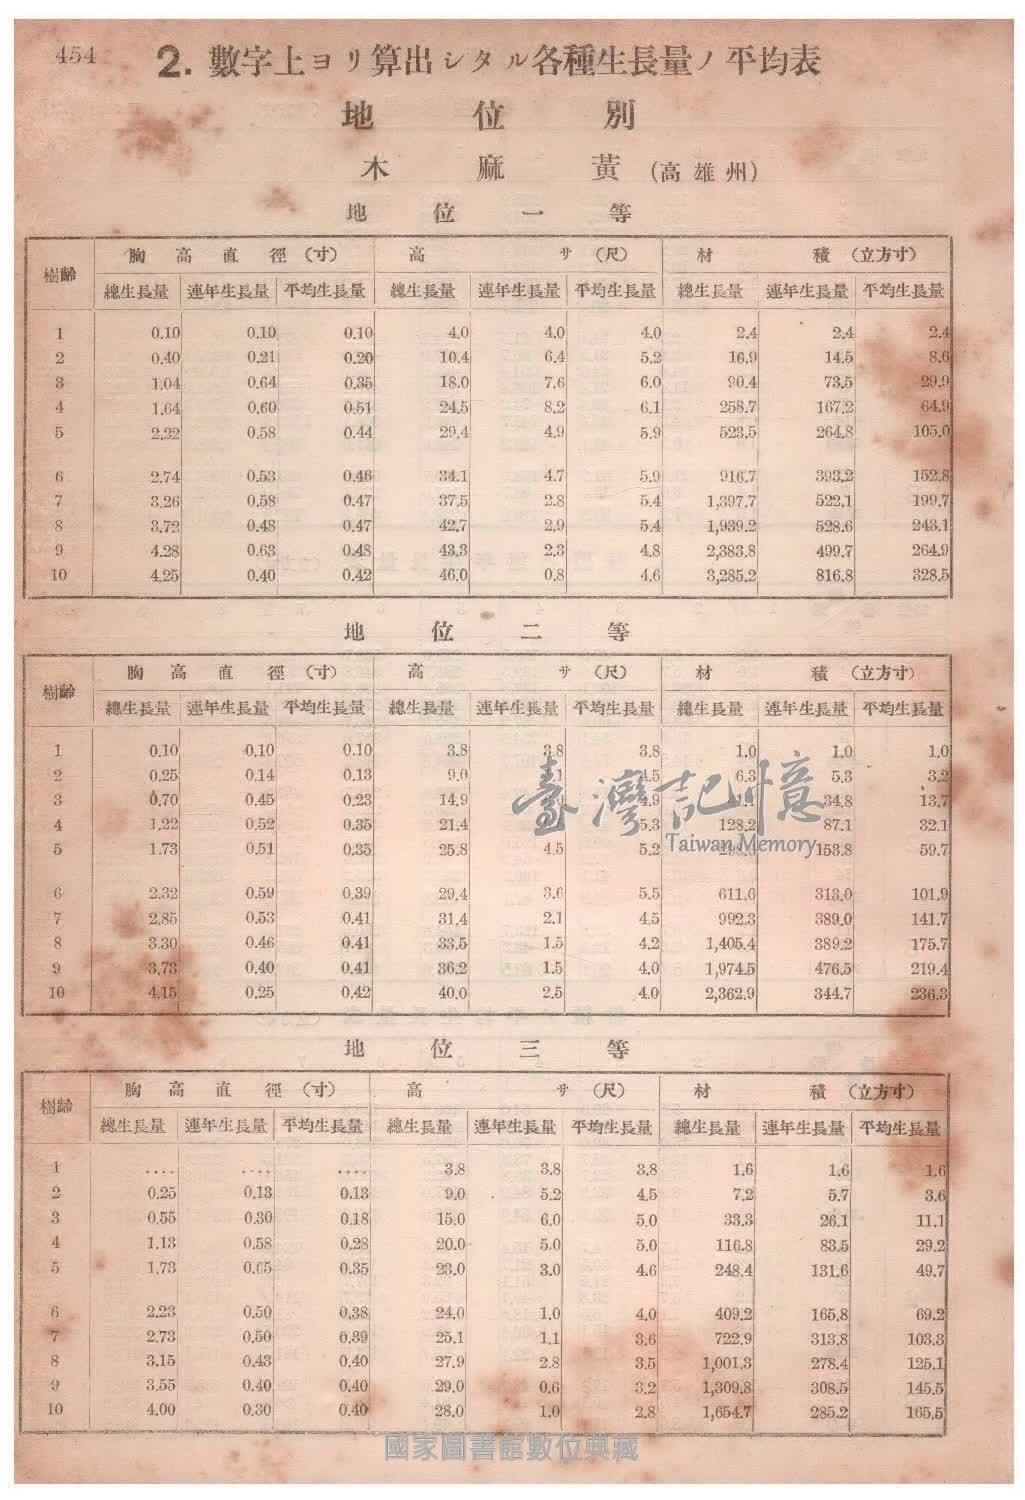 454
2. 數字上ヨリ算出シタル各種生長量ノ平均表
地 位 別
木 麻 黃 (高 雄 州)
地 位 一 等
樹齡 胸 高 直 徑 (寸) 高 サ (尺) 材 積 (立方寸)
總生長量 連年生長量 平均生長量 總生長量 連年生長量 平均生長量 總生長量 連年生長量 平均生長量
1 0.10 0.10 0.10 4.0 4.0 4.0 2.4 2.4 2.4
2 0.40 0.21 0.20 10.4 6.4 5.2 16.9 14.5 8.6
3 1.04 0.64 0.35 18.0 7.6 6.0 90.4 73.5 29.9
4 1.64 0.60 0.51 24.5 8.2 6.1 258.7 167.2 64.9
5 2.22 0.58 0.44 29.4 4.9 5.9 523.5 264.8 105.0
6 2.74 0.53 0.46 34.1 4.7 5.9 916.7 393.2 152.8
7 3.26 0.58 0.47 37.5 2.8 5.4 1,397.7 522.1 199.7
8 3.72 0.48 0.47 42.7 2.9 5.4 1,939.2 528.6 243.1
9 4.28 0.63 0.48 43.3 2.3 4.8 2,383.8 499.7 264.9
10 4.25 0.40 0.42 46.0 0.8 4.6 3,285.2 816.8 328.5
地 位 二 等
樹齡 胸 高 直 徑 (寸) 高 サ (尺) 材 積 (立方寸)
總生長量 連年生長量 平均生長量 總生長量 連年生長量 平均生長量 總生長量 連年生長量 平均生長量
1 0.10 0.10 0.10 3.8 3.8 3.8 1.0 1.0 1.0
2 0.25 0.14 0.13 9.0 4.5 6.3 5.3 3.2
3 0.70 0.45 0.23 14.9 4.9 34.8 13.7
4 1.22 0.52 0.35 21.4 5.3 128.2 87.1 32.1
5 1.73 0.51 0.35 25.8 4.5 5.2 153.8 59.7
6 2.32 0.59 0.39 29.4 3.6 5.5 611.6 313.0 101.9
7 2.85 0.53 0.41 31.4 2.1 4.5 992.3 389.0 141.7
8 3.30 0.46 0.41 33.5 1.5 4.2 1,405.4 389.2 175.7
9 3.73 0.40 0.41 36.2 1.5 4.0 1,974.5 476.5 219.4
10 4.15 0.25 0.42 40.0 2.5 4.0 2,362.9 344.7 236.3
臺灣記憶
Taiwan Memory
地 位 三 等
樹齡 胸 高 直 徑 (寸) 高 サ (尺) 材 積 (立方寸)
總生長量 連年生長量 平均生長量 總生長量 連年生長量 平均生長量 總生長量 連年生長量 平均生長量
1 .... .... .... 3.8 3.8 3.8 1.6 1.6 1.6
2 0.25 0.13 0.13 9.0 5.2 4.5 7.2 5.7 3.6
3 0.55 0.30 0.18 15.0 6.0 5.0 33.3 26.1 11.1
4 1.13 0.58 0.28 20.0 5.0 5.0 116.8 83.5 29.2
5 1.73 0.65 0.35 23.0 3.0 4.6 248.4 131.6 49.7
6 2.23 0.50 0.38 24.0 1.0 4.0 409.2 165.8 69.2
7 2.73 0.50 0.39 25.1 1.1 3.6 722.9 313.8 103.3
8 3.15 0.43 0.40 27.9 2.8 3.5 1,001.3 278.4 125.1
9 3.55 0.40 0.40 29.0 0.6 3.2 1,309.8 308.5 145.5
10 4.00 0.30 0.40 28.0 1.0 2.8 1,654.7 285.2 165.5
國家圖書館數位典藏